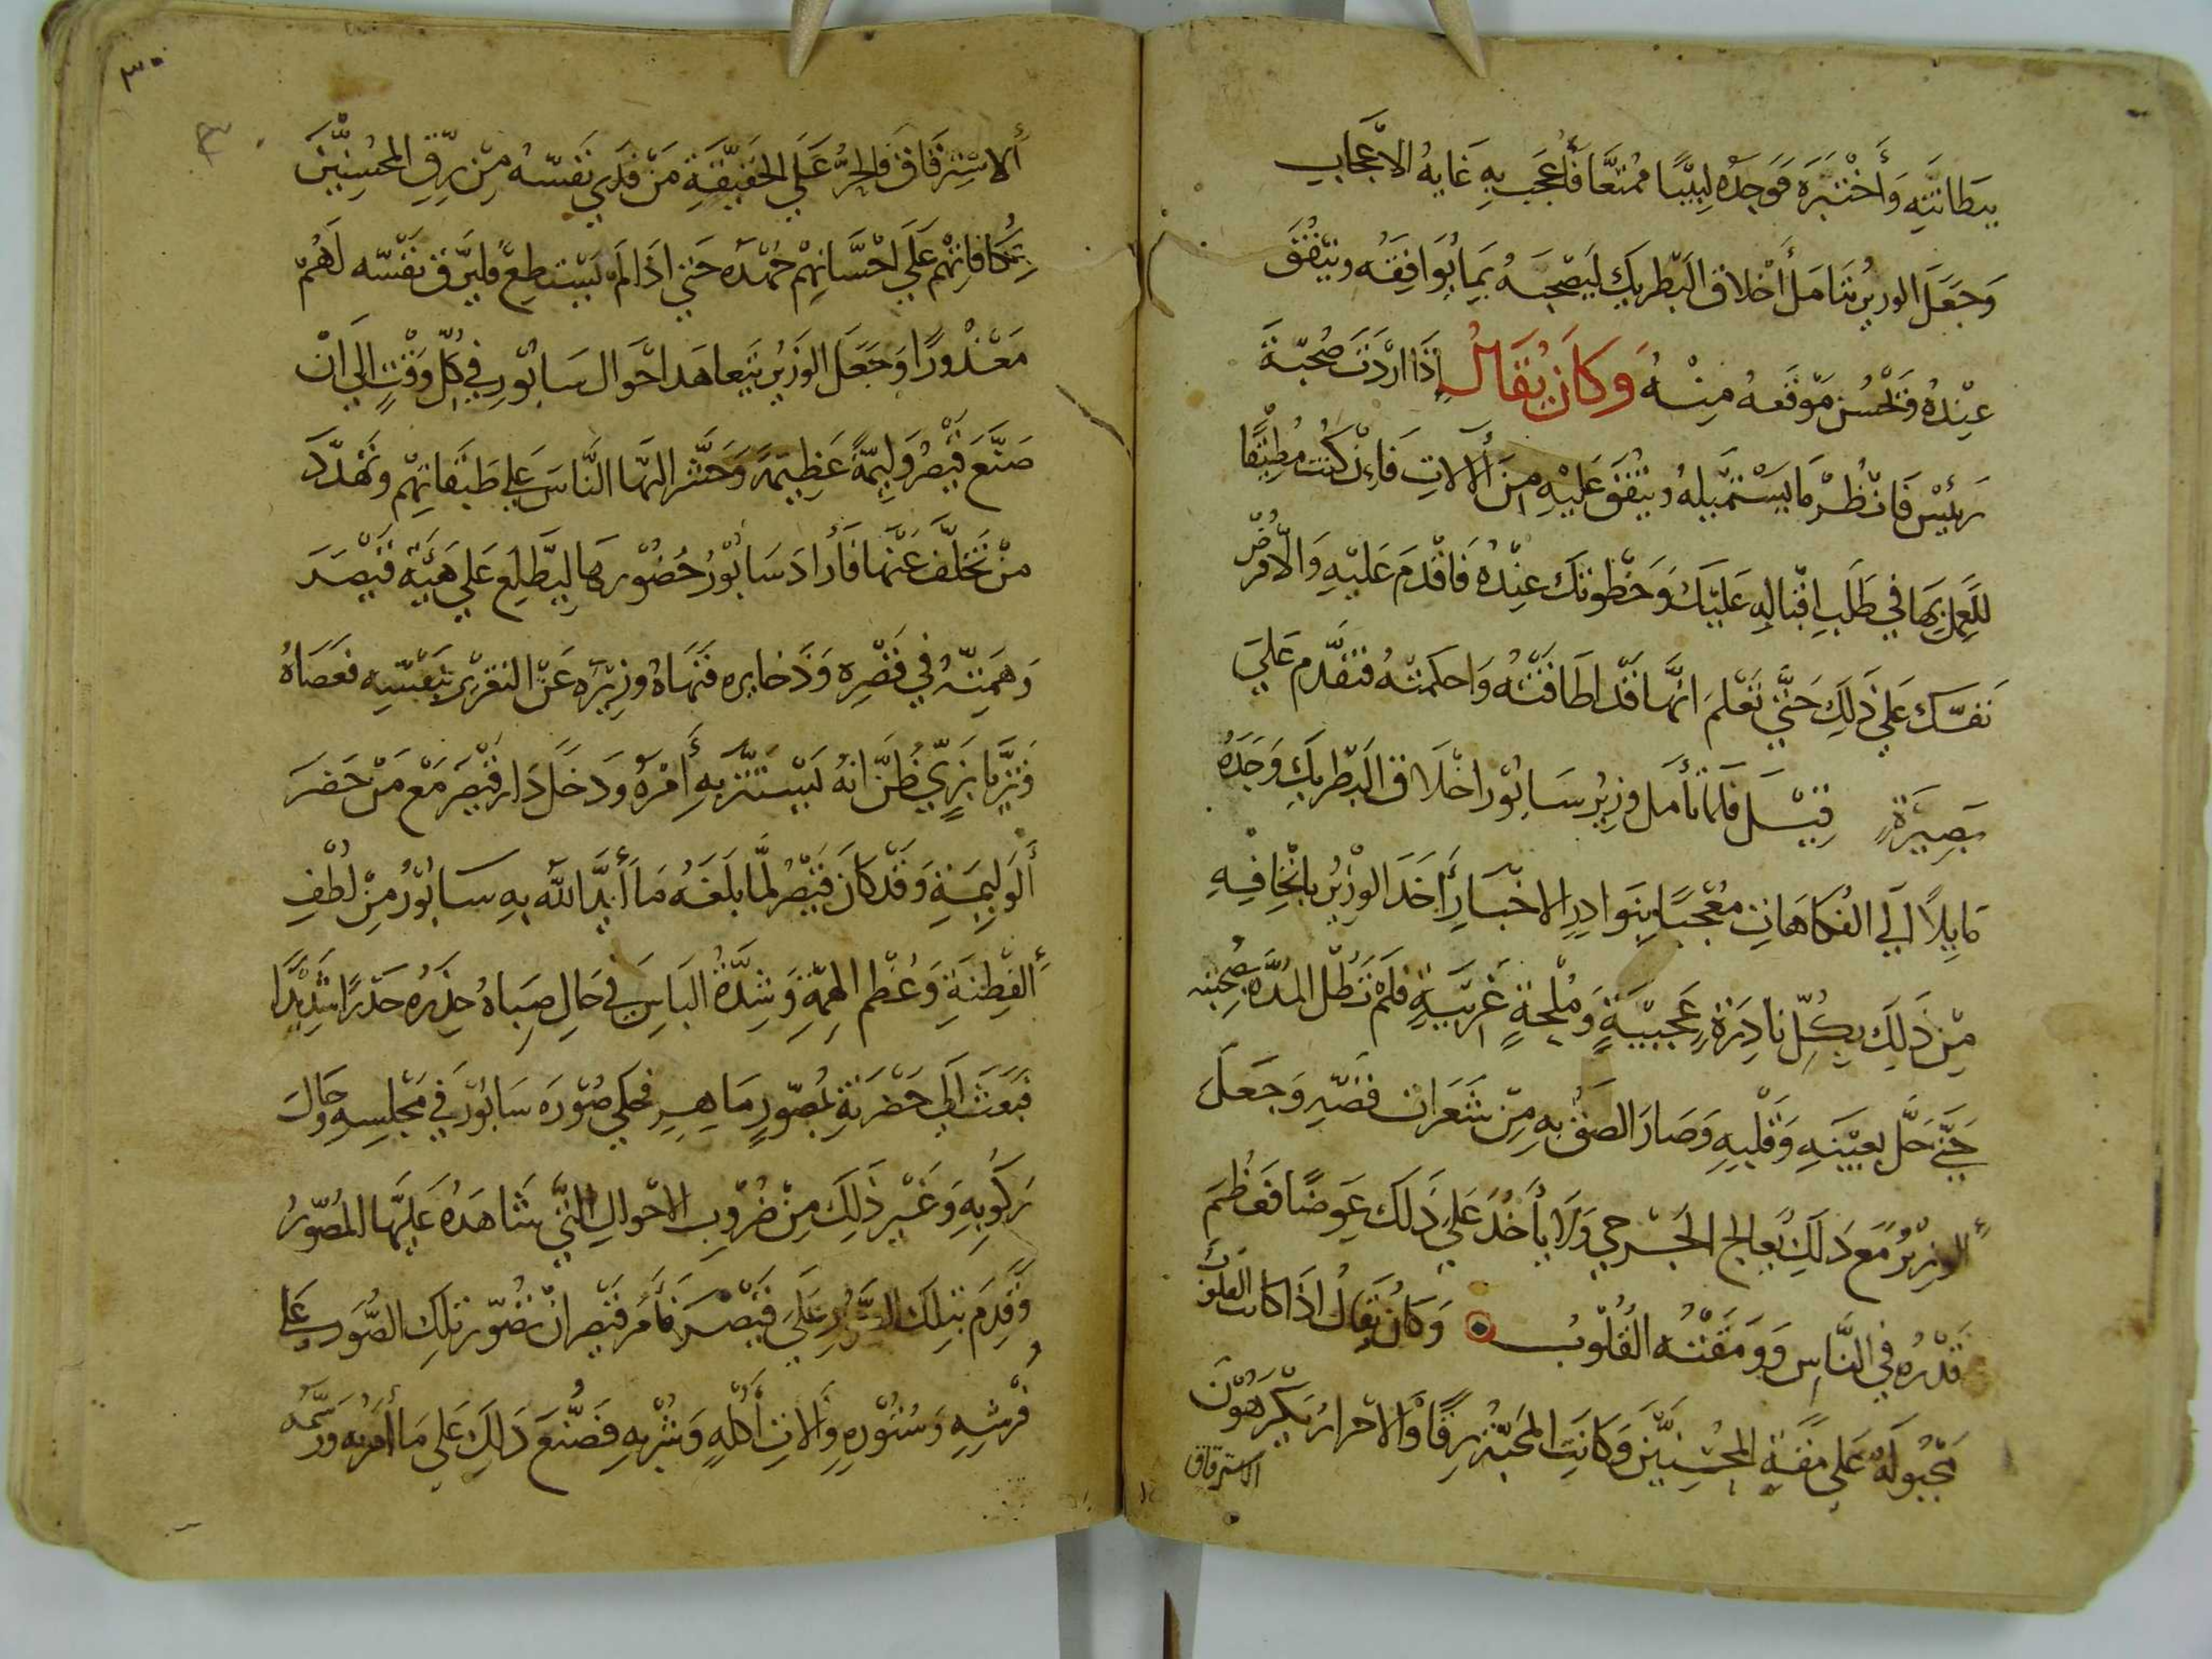 ببطانته وَأَخْتَبَرَه فَوَجَدَهُ لَبِيْبًا مُمْتِعًا فَأُعْجِبَ بِهِ غَايةُ الاعْجَابِ
وَجَعَلَ الوزيرُ يتَامَلُ أَخْلاقَ البَطْريكِ لِيَصْحَبَهُ بِمَا يُوَافِقَهُ وينفُقَ
عِنْدَهُ وَيَحْسُن مَوْقعهُ مِنْهُ وَكَانَ يُقَالُ إِذَا ارَدْتَ صُحْبَةَ
رَئيْسٍ فَانْظُرْ مَا يَسْتَمِيلهُ وينفُقُ عَلَيْهِ مِنَ أَلالاتِ فَإِن كُنْت مُطِيْقًا
للعملِ بِهَا في طَلَبِ اقْبَالِهِ عَلَيْكَ وَحَظوتكَ عِنْدَهُ فَاقْدَمِ عَلَيْهِ وَالاّ فرُضْ
نَفسَك عَلي ذَلِكَ حَتَّي تَعْلَمَ انَّهَا قَدْ اطَاقَتْهُ وَاحكمتْهُ فتقدَّم عَليَ
بَصِيْرَةٍ قِيْلَ فَلمَّا تأَمل وزيرُ سَابُوْر اخْلَاقَ البَطْريكِ وَجَدَهُ
مَايِلاً اَلي الفُكَاهَاتِ مُعْجَبًا بِنَوادِرِ الاخْبَارِ أَخَذَ الوزيْرُ يَاتْحِافِهِ
مِنْ ذَلِكَ بِكُلِّ نادِرَةٍ عَجِيْبَةٍ وَمُلْحَةٍ غَرِيْبَةٍ فَلَمْ تَطُل المُدَّة بصُحْبته
حَتَّي حَلَّ بعينَهِ وَقَلْبِهِ وَصَارَ الصَق بِهِ مِن شَعَرات قصّهِ وَجَعَلَ
أَلوزيْرُ مَع ذَلِكَ يُعالج الجَرحي وَلَا يأَخُذ عَلي ذَلكَ عِوَضًا فَعَظُمَ
قَدْرُه في النَّاسِ وَوَمِقَتْهُ القُلُوْبُ وَكانَ يُقالُ اذَا كانت القلُوبُ
مَجْبُولَةً عَلي مقَةِ المحسِنِيْنَ وَكَانَتِ المَحَبّةُ رِقًّا وَالاحرارُ يَكْرَهُوْنَ
الاسترقاق
٣٠
٣٠
أَلاسْتِرْقَاقَ فَالحرُّ عَلَي الحَقيقَةِ مَنْ فَدَي نَفسَهُ مِن رِقِّ المحُسِنِيْنَ
بمُكَافاتِهْم عَلَي احْسَانِهِمْ جُهْدَهُ حَتي اذَا لَمْ يَسْتطِعْ فليرَّق نَفْسَه لَهُمْ
مَعْذُورًا وَجَعَلَ الوَزيْر يَتعاهَد احْوَالَ سَابُوْر في كلّ وَقْتٍ الي انْ
صَنَعَ قَيْصرُ وَلِيْمَةً عَظِيمَةً وَحَشَر اليْهَا النَّاسَ عَلي طَبَقَاتِهْم وتَهَدَّدَ
مَنْ تَخَلَّفَ عَنْهَا فَأَرَادَ سَابُوْرُ حُضُوْرهَا لِيَطَّلِع عَلَي هَيْئَة قَيْصَرَ
وَهمَتِهِ في قَصْرِهِ وَذَخايره فَنَهَاهُ وزِيْرَه عَنْ التغريْر بنَفسِهِ فعَصَاهُ
وَتزَيَّا بزَيٍّ ظَنَّ انهُ يَسْتتر بِهِ أَمْرهُ وَدَخَلَ دَار قَيْصَر مَعْ مَنْ حَضَرَ
أَلوَلِيمَةِ وَقَدْ كَان قَيْصرُ لمَّا بلَغَهُ مَا أَيَّدَ اللهُ بِهِ سَابُوْرُ مِنْ لُطْفِ
أَلفِطْنَةِ وَعُظْم الهِمَّةِ وَشِدَّةُ البَاسِ في حَالِ صِبَاهُ حِذَرهُ حَذَرًا شَدِيْدًا
فبَعَثَ الَي حَضْرَتِهِ بمُصَوِّرٍ مَاهِرِ فَحَكي صُوْرَه سَابُوْرَ في مَجْلِسِهِ وَحَال
رُكُوْبِهِ وَغَيْر ذَلِكَ مِنْ ضُرُوْبِ الاحْوالِ الَّتي شَاهَدهُ عَليْهَا المُصَوّرُ
وَقَدِمَ بتِلكَ الصُّوَرِ عَلَي قَيْصَرَ فَأَمَرَ قَيْصر انْ تُصَوّر تلكِ الصُّوَر عَلي
فُرْشِهِ وَسُتُوْرِهِ وأَلاتِ أَكْلِهِ وَشُرْبِهِ فَصُنِعَ ذَلِكَ عَلي مَا أَمَرَ بِهِ وَرَسَمَهُ